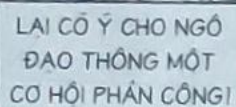 LẠI CỐ Ý CHO NGÔ
ĐẠO THÔNG MỘT
CƠ HỘI PHẢN CÔNG!